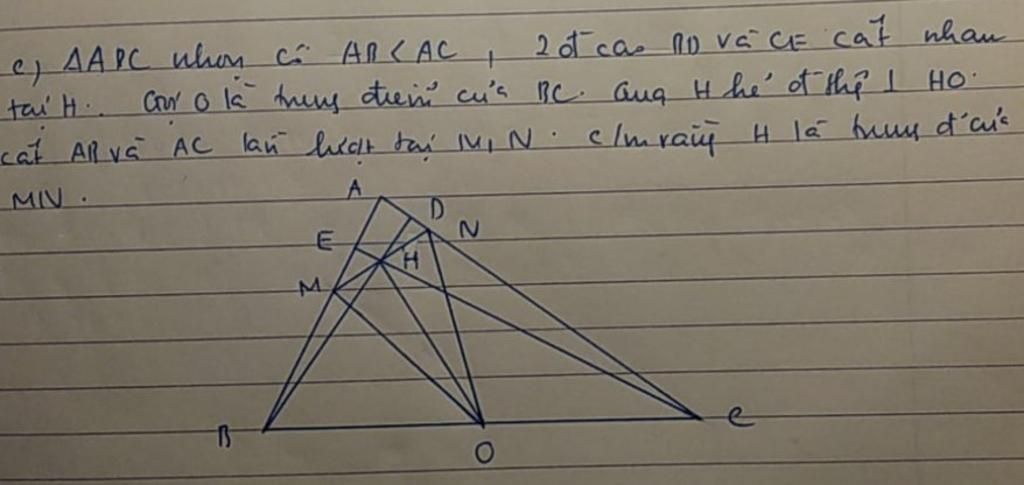 c) ΔABC nhọn có AB < AC, 2 đ cao BD và CE cắt nhau
tại H. Gọi O là trung điểm của BC. Qua H kẻ đ thg ⊥ HO.
cắt AB và AC lần lượt tại M, N. c/m rằng H là trung đ của
MN.
A
D
E
N
H
M
B
C
O